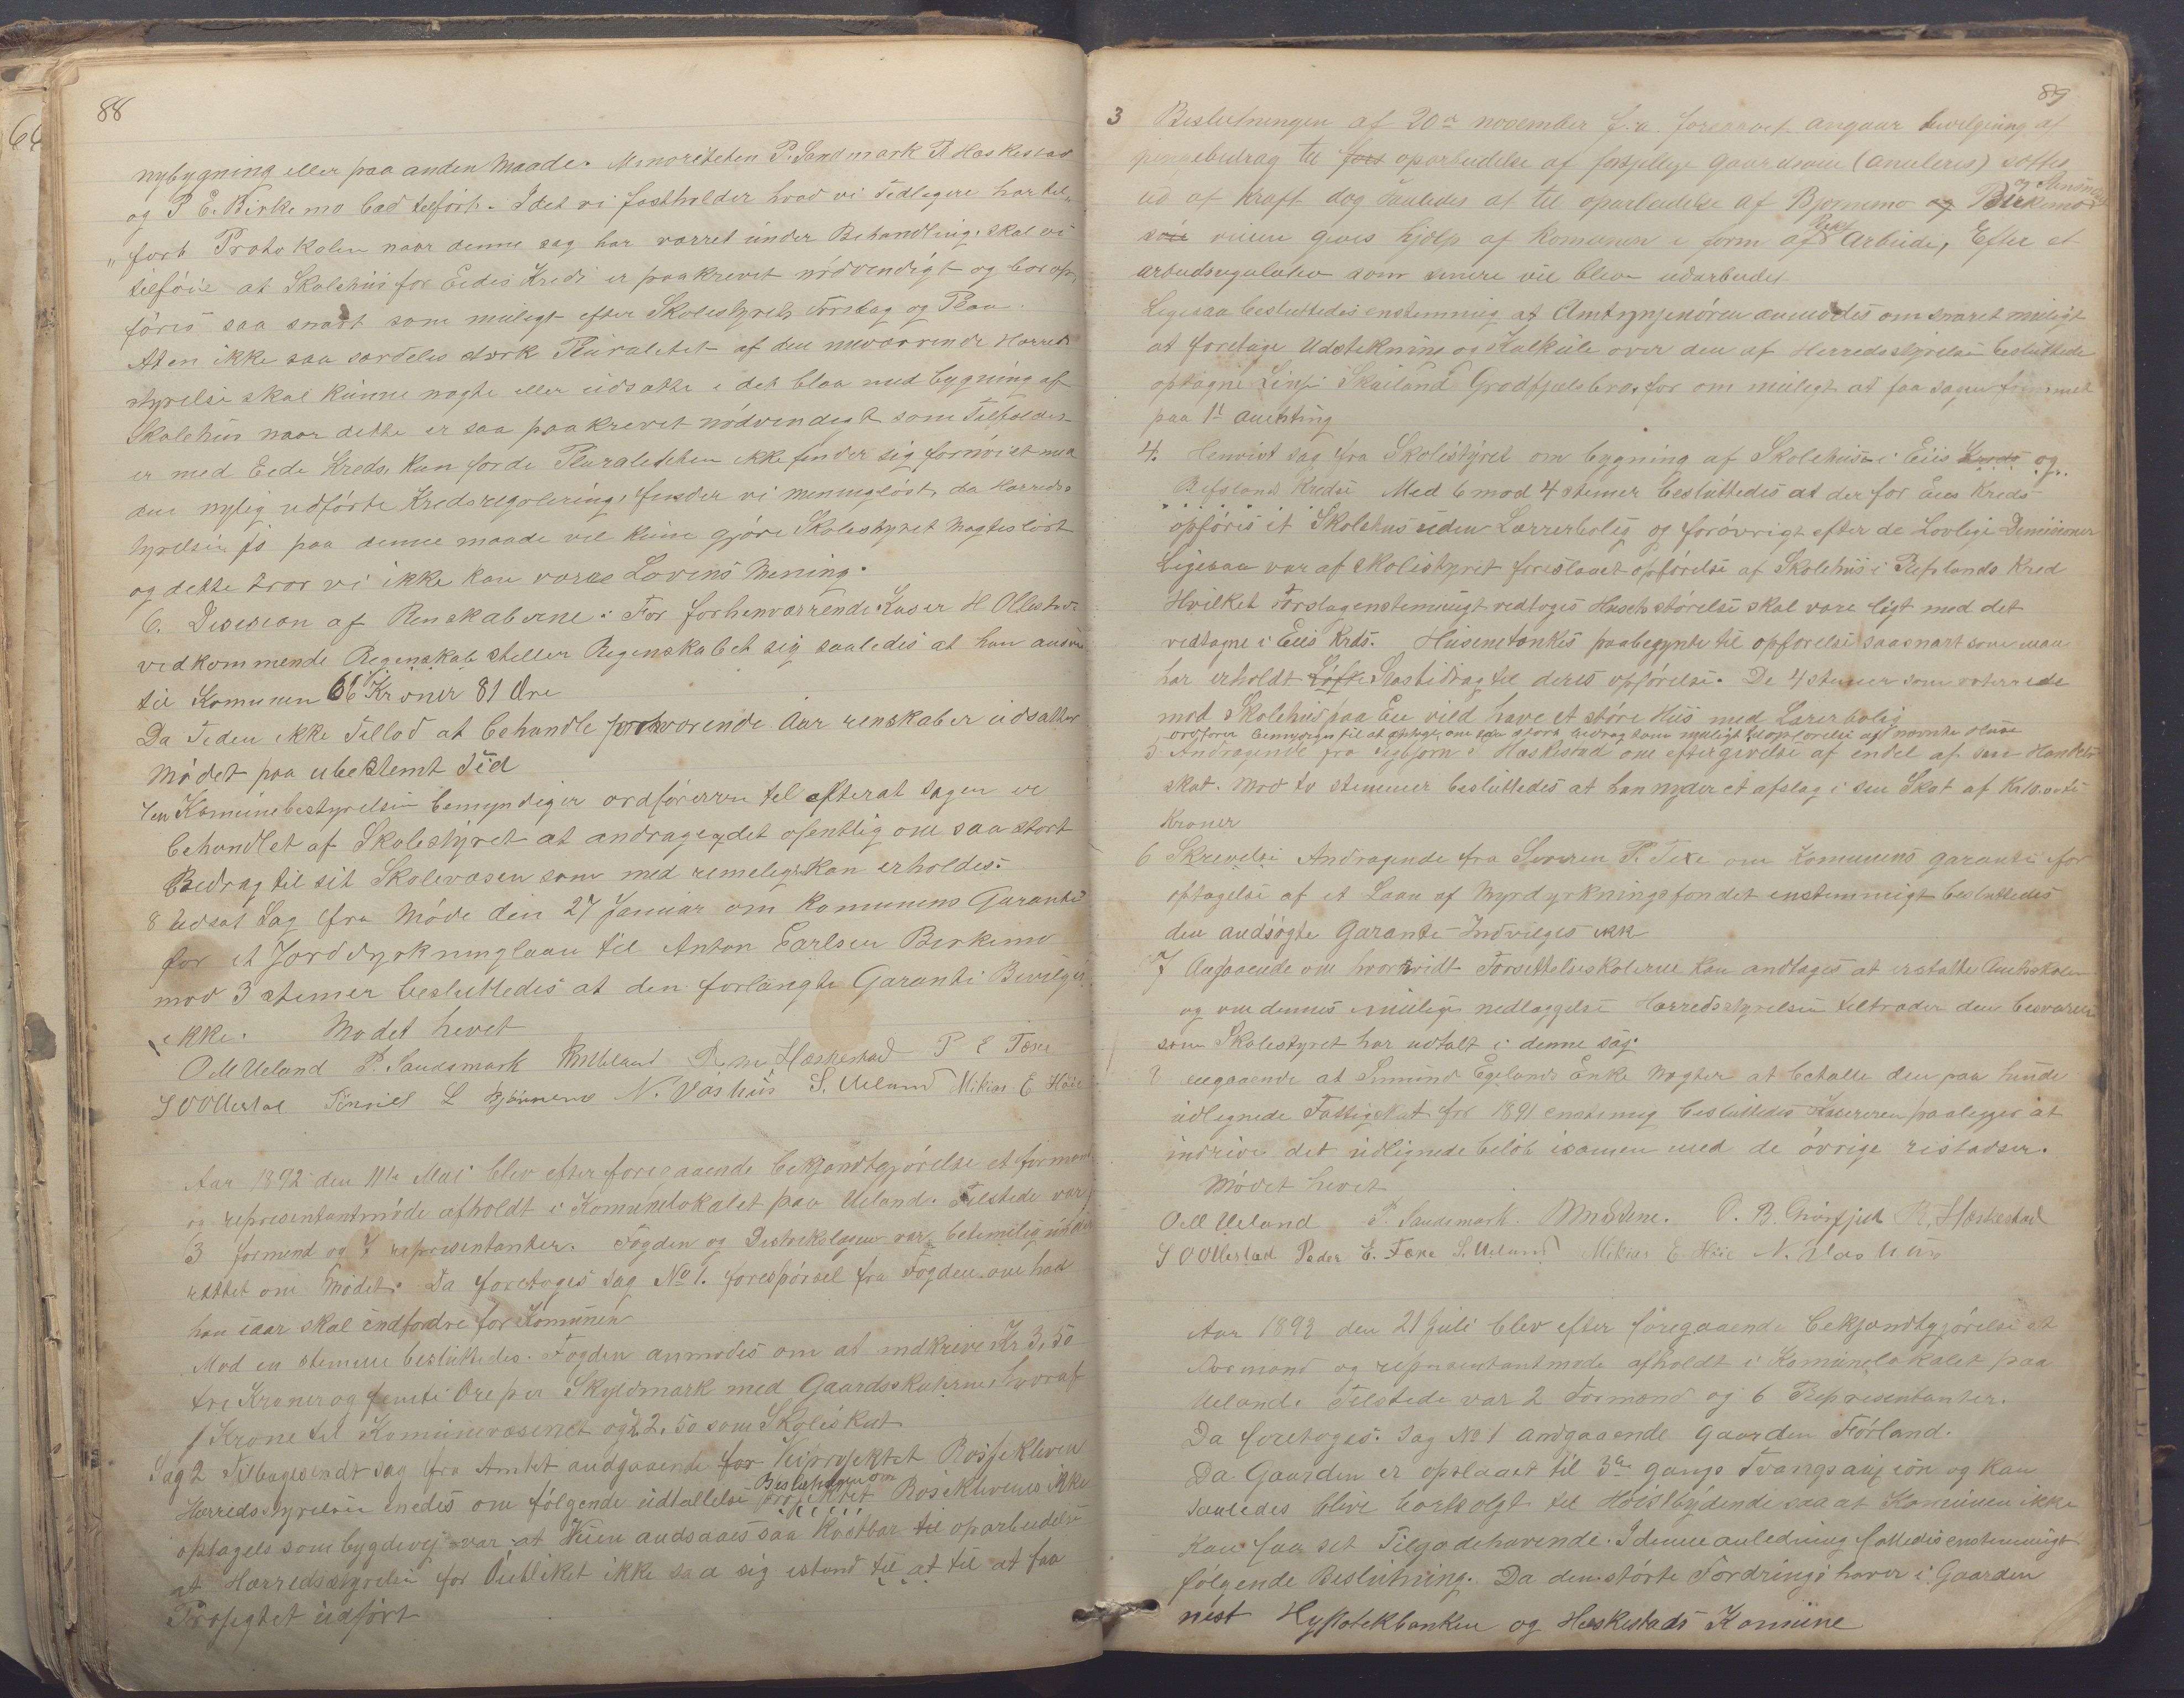 88
nybygning eller paa anden Maade. Minoriteten P. Sandmark R Haskestad
og P E. Birkemo bad tilført. Idet vi fastholder hvad vi Tidligere har til„
„ført Protokolen naar denne sag har værret under Behandling, skal vi
tilføie at Skolehus for Eedes Kreds er paakrevet nødvendigt og bør op„
føres saa snart som muligt efter Skolestyrets Forslag og Plan.
At en ikke saa særdeles sterk Pluralitet af den nuværrende Herreds
styrelse skal kunne negte eller udsætte i det blaa med bygning af
Skolehus naar dette er saa paakrevet nødvendigt som Tilfældet
er med Eede Kreds, kun fordi Pluraliteten ikke finder sig fornøiet med
den nylig udførte Kredsregulering, finder vi meningsløst, da Herreds„
tyrelsen jo paa denne maade vil kunne gjøre Skolestyret Magtesløst
og dette tror vi ikke kan være Lovens Mening.
6. Desision af Renskaberne: For forhenværrende Kaser H Ollestad
vedkommende Regenskab stiller Regenskabet sig saaledes at han
til Komunen 66 Kroner 81 Øre
Da Tiden ikke Tillod at behandle forhværende Aar renskaber udsattes
Mødet paa ubestemt Tid
7 en Komunebestyrelsen bemyndiger ordføreren til efterat sagen er
behandlet af Skolestyret at andrage det ofentlig om saa stort
Bidrag til sit Skolevæsen som med remelighed kan erholdes.
8 Udsat Sag fra Møde den 27 Januar om Komunens Garanti
for et Jorddyrkninglaan til Anton Earlsen Birkemo
mod 3 stemer besluttedes at den forlangte Garanti Bevilges
ikke. Modet hevet
O M Ueland P. Sandsmark R Haskestad P E Texe
S O Ollestad L Bjønnemo N. Vashus S. Ueland Mikias E Høie
Aar 1892 den 11te Mai blev efter foregaaende bekjendtgjørelse et formand
og representantmøde afholdt i Komunelokalet paa Ueland. Tilstede var
3 formend og 7 representanter. Fogden og Destrikslægen var betimelig
rettet om Modet. Da foretoges sag No 1. forespørsel fra Fogden om hvad
han iaar skal indfordre for Komunen
Mod en stemme besluttedes. Fogden anmodes om at indkreve Kr 3,50
tre Kroner og femti Øre per Skyldmark med Gaardsskatterne, hvoraf
1 Krone til Komunevæsenet og 2,50 som Skoleskat
Sag 2 Tilbagesendt sag fra Amtet andgaaende for Veiprosjektet Rosjekleven
Herredsstyrelsen enedes om følgende udtallelse Beslutningen om prosjektet Rosjeklevens ikke
optagels som bygdevej var at Veien andsaaes saa kostbar til oparbeidelse
at Herredsstyrelsen for Øieblikket ikke saa sig istand til at til at faa
Prosjegtet udført
89
3 Beslutningen af 20de november f.a. foreaavet angaar bevilgning af
pengebedrag til fors oparbeidelse af forsjellige gaardsveie (anuleres) sættes
ud af Kraft dog saaledes at til oparbeidelse af Bjørnemo og Birkemo og
veien gives hjelp af Komunen i form af Arbeide, Efter et
arbeidsregulativ som senere vil blive udarbeidet
Ligesaa besluttedes enstemmig at Amtsingenøren anmodes om snaret muligt
at foretage Udstekning og Kalkule over den af Herredsstyrelsen besluttede
optagne Linje Skailand Grødfjelsbro, for om muligt at faa sagen fremmet
paa 1te amtsting
4. Henvist sag fra Skolestyret om bygning af Skolehuse i Eiis Kreds og
Refsland Kredse Med 6 mod 4 stemer besluttedes at der for Eies Kreds
opføres it Skolehus uden Lærrerbolig og forøvrigt efter de Lovlige Demisioner
Ligesaa var af skolestyret foreslaaet opførelse af Skolehus i Refslands Kred
Hvilket Forslag enstemmigt vedtoges Husets størelse skal være ligt med det
vedtagne i Eiis Krds. Husene tænkes paabegynte til opførelse saasnart som man
har erholdt Løfte Statsbidrag til deres opførelse. De 4 stemer som voterrede
mod Skolehus paa Eie vild have et støre Hus med Lærerbolig
ordfører bemyndiges til at andrage om saa stort bidrag som muligt til opførelse af nævnte Huse
5 Andragende fra Sigbjørn S Haskestad om eftergivelse af endel af sin Handels
skat. Mod to stemmer besluttedes at han nyder et afslag i sin Skat af Kr 10. ti
Kroner
6 Skrevelse Andragende fra Severen P. Texe om Komunens garanti for
optagelse af et Laan af Myrdyrkningsfondet enstemmigt besluttedes
den andsøgte Garanti Indvilges ikke
7 Angaaende om hvorvidt Forsettelseskolerne kan andtages at erstatte Amtskolen
og om dennes mulige nedlæggelse Herredsstyrelsen tiltræder den besvarelse
som Skolestyret har udtalt i denne sag.
8 angaaende at Simund Egelands Enke Negter at betalle den paa hende
udlignede Fattigskat for 1891 enstemmig besluttedes Kasereren paalegges at
indrive det udlignede beløb isamen med de øvrige restadser.
Mødet hevet
O M Ueland P. Sandsmark. O. B. Grøsfjeld R. Haskestad
S O Ollestad Peder E. Texe S. Ueland Mikias E Høie N. Vashus
Aar 1892 den 21 Juli blev efter foregaaende bekjendtgjørelse et
Formand og representantmøde afholdt i Komunelokalet paa
Ueland. Tilstede var 2 Formænd og 6 Representanter.
Da foretoges. Sag No 1 andgaaende Gaarden Førland.
Da Gaarden er opslaaet til 3die gangs Tvangsauxion og kan
saaledes blive bortsolgt til Høistbydende saa at Komunen ikke
kan faa sit Tilgodehavende. I denne anledning fattedes enstemmigt
følgende Beslutning. Da den største Fordringshaver i Gaarden
nest Hypotekbanken og Heskestads Komune